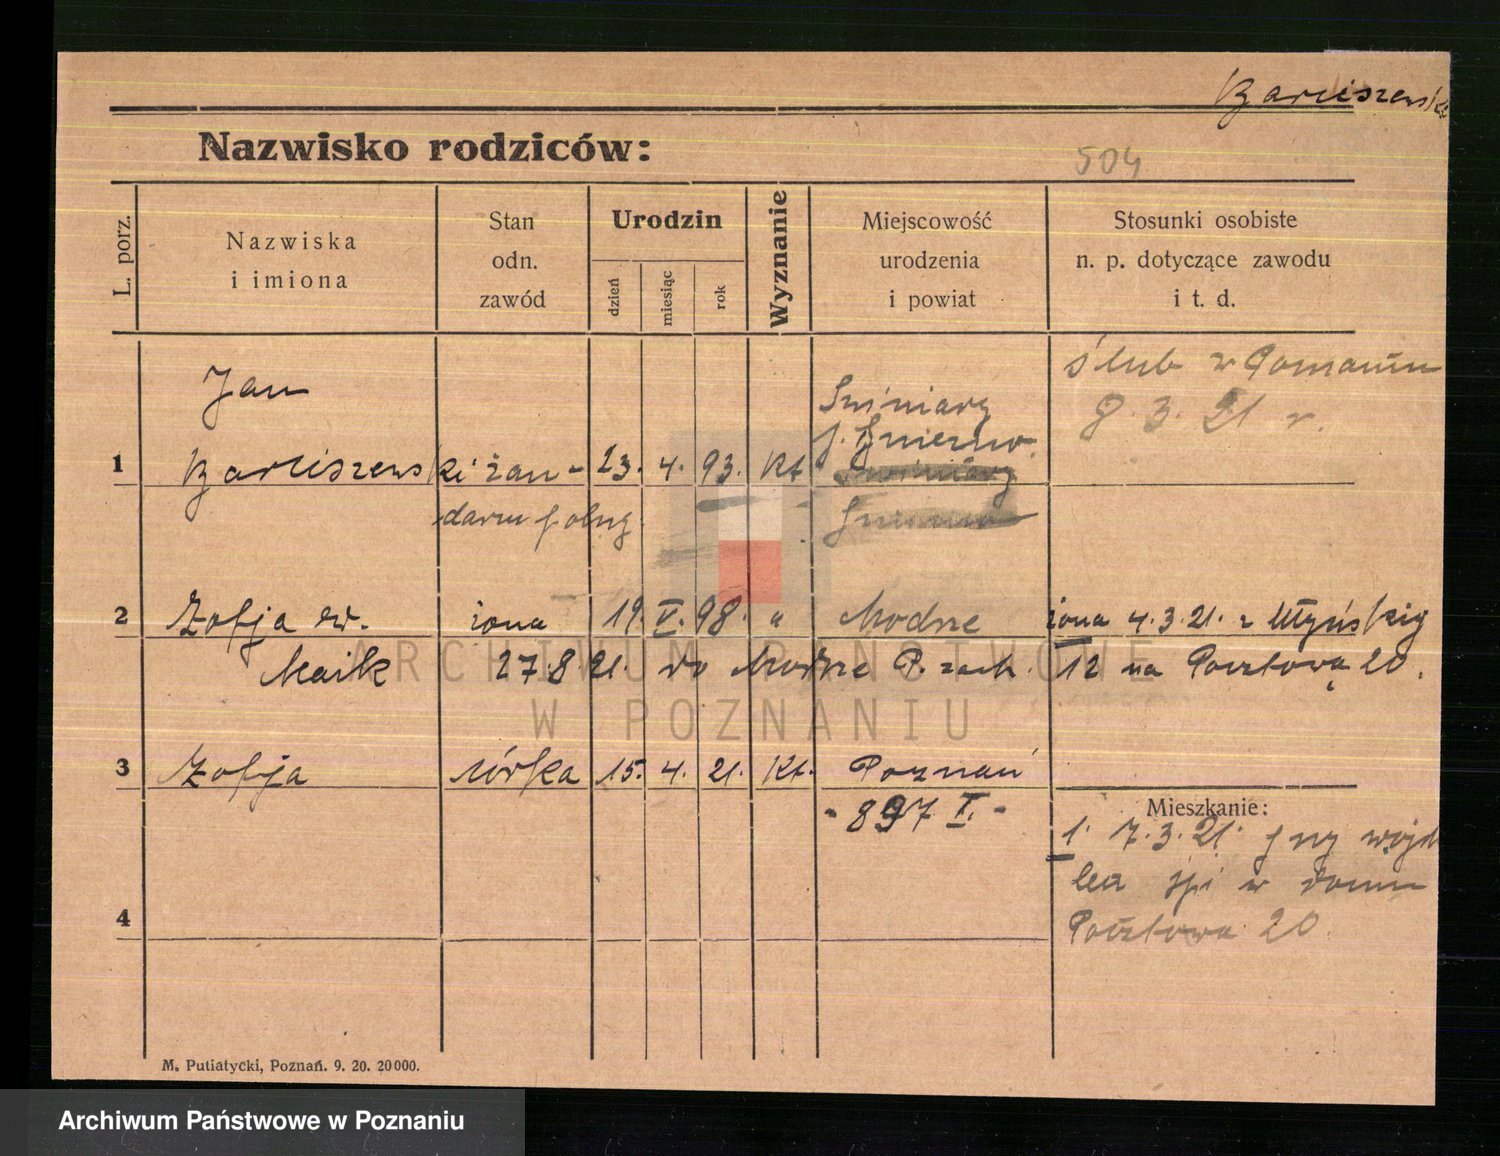 Barciszewski
Nazwisko rodziców:
504
L. porz.
Nazwiska
i imiona
Stan
odn.
zawód
Urodzin
dzień
miesiąc
rok
Wyznanie
Miejscowość
urodzenia
i powiat
Stosunki osobiste
n. p. dotyczące zawodu
i t. d.
ślub w Poznaniu
8. 3. 21 r.
Jan
Swiniary
p. Gniezno.
1 Barciszewski żan- 23. 4. 93. kt Swiniary
darm polny Gniezno
2 Zofja żona 19. V. 98. " Modrze żona 4.3.21. z Młyńskiej
Maik 27 8 21. do Modrze P. zach. 12 na Pocztową 20.
3 Zofja córka 15. 4. 21. kt. Poznań
- 897 I. -
Mieszkanie:
1. 7. 3. 21. przy wojsk
lecz śpi w domu
Pocztowa 20
4
M. Putiatycki, Poznań. 9. 20. 20000.
ARCHIWUM PAŃSTWOWE
W POZNANIU
Archiwum Państwowe w Poznaniu